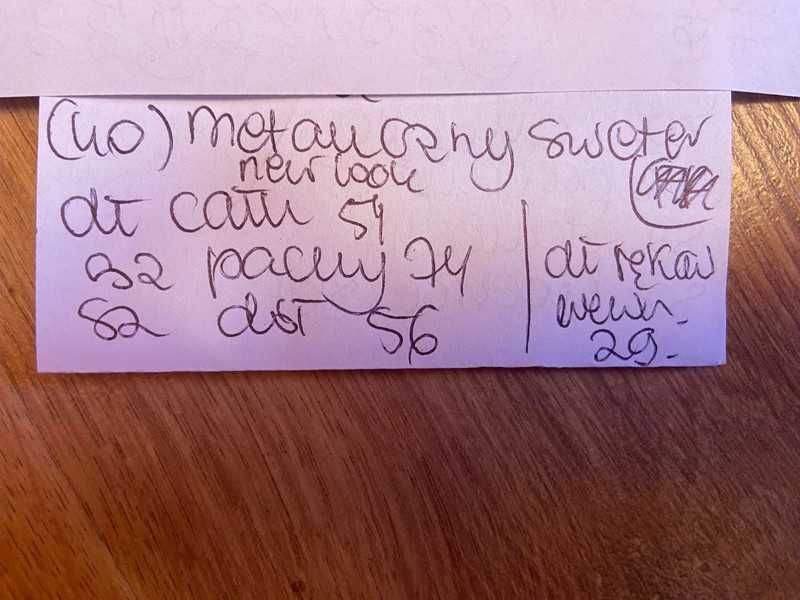 (40) Metaliczny sweter
new look
dł całk 54
sz pachy 74
sz dół 56
dł rękaw
wewn.
29.